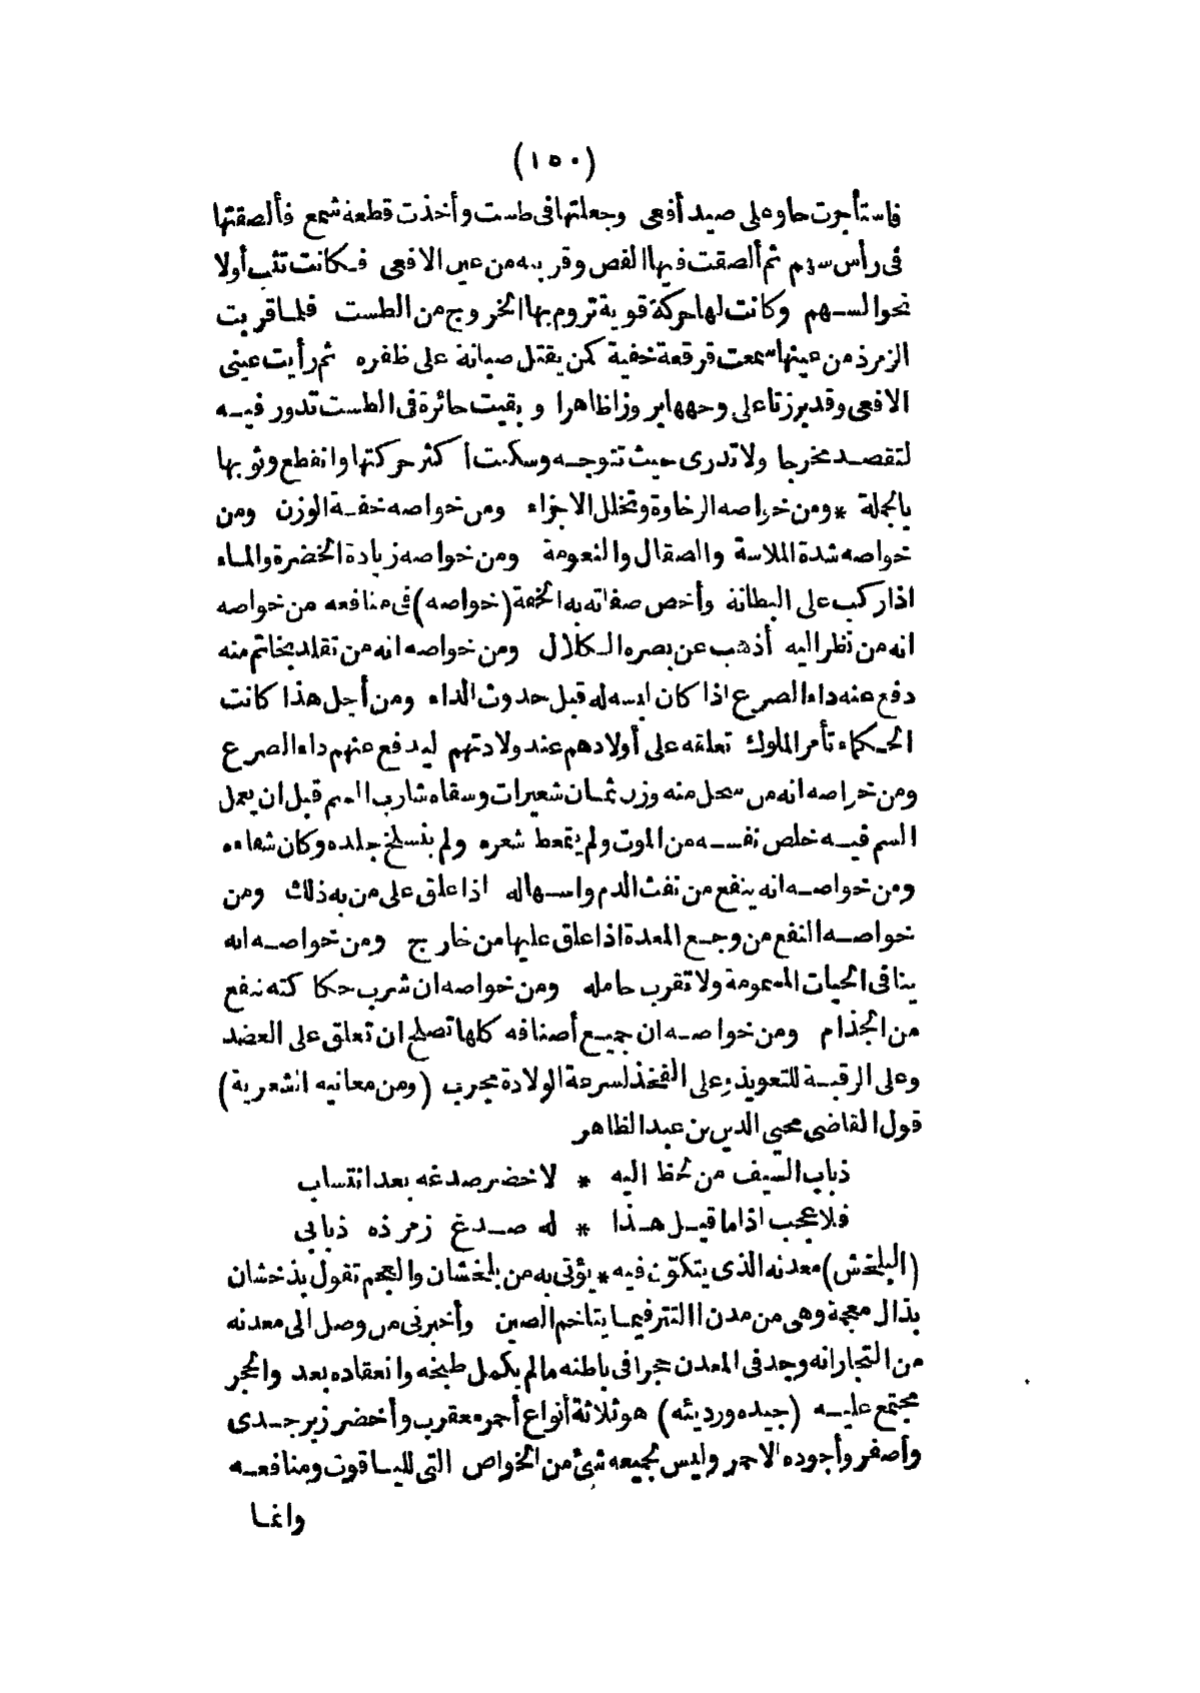 (١٥٠)
فاستأجرت حاو على صيد أفعى وجعلتها فى طست وأخذت قطعة شمع فألصقتها
فى رأس سهم ثم ألصقت فيها الفص وقربته من عين الافعى فكانت تثب أولا
نحو السهم وكانت لها حركة قوية تروم بها الخروج من الطست فلما قربت
الزمرذ من عينها سمعت قرقعة خفية كمن يقتل صيبانة على ظفره ثم رأيت عينى
الافعى وقد برزتا على وجهها بروزا ظاهرا وبقيت حائرة فى الطست تدور فيه
لتقصد مخرجا ولا تدرى حيث تتوجه وسكنت أكثر حركتها وانقطع وثوبها
بالجملة * ومن خواصه الرخاوة وتخلل الاجزاء ومن خواصه خفة الوزن ومن
خواصه شدة الملاسة والصقال والنعومة ومن خواصه زيادة الخضرة والماء
اذا ركب على البطانة وأخص صفاته به الخفة (خواصه) فى منافعه من خواصه
انه من نظر اليه أذهب عن بصره الكلال ومن خواصه انه من تقلد بخاتم منه
دفع عنه داء الصرع اذا كان لبسه له قبل حدوث الداء ومن أجل هذا كانت
الحكماء تأمر الملوك تعلقه على أولادهم عند ولادتهم ليدفع عنهم داء الصرع
ومن خواصه انه من سحل منه وزن ثمان شعيرات وسقاه شارب السم قبل ان يعمل
السم فيه خلص نفسه من الموت ولم يتمعط شعره ولم ينسلخ جلده وكان شفاءه
ومن خواصه انه ينفع من نفث الدم واسهاله اذا علق على من به ذلك ومن
خواصه النفع من وجع المعدة اذا علق عليها من خارج ومن خواصه انه
ينافى الحيات المسمومة ولا تقرب حامله ومن خواصه ان شرب حكاكته ينفع
من الجذام ومن خواصه ان جميع أصنافه كلها تصلح ان تعلق على العضد
وعلى الرقبة للتعويذ وعلى الفخذ لسرعة الولادة مجرب (ومن معانيه الشعرية)
قول القاضى محيى الدين بن عبد الظاهر
ذباب السيف من لحظ اليه * لاخضر صدغه بعد انتساب
فلا عجب اذا ما قيل هذا * له صدغ زمرذه ذبابى
(البلخش) معدنه الذى يتكوّن فيه * يؤتى به من بلخشان والعجم تقول بذخشان
بذال معجمة وهى من مدن االتتر فيما يتاخم الصين وأخبرنى من وصل الى معدنه
من التجار انه وجد فى المعدن حجرا فى باطنه ما لم يكمل طبخه وانعقاده بعد والحجر
مجتمع عليه (جيده ورديئه) هو ثلاثة أنواع أحمر معقرب وأخضر زبرجدى
وأصفر وأجوده الاحمر وليس لجميعه شئ من الخواص التى للياقوت ومنافعه
وانما